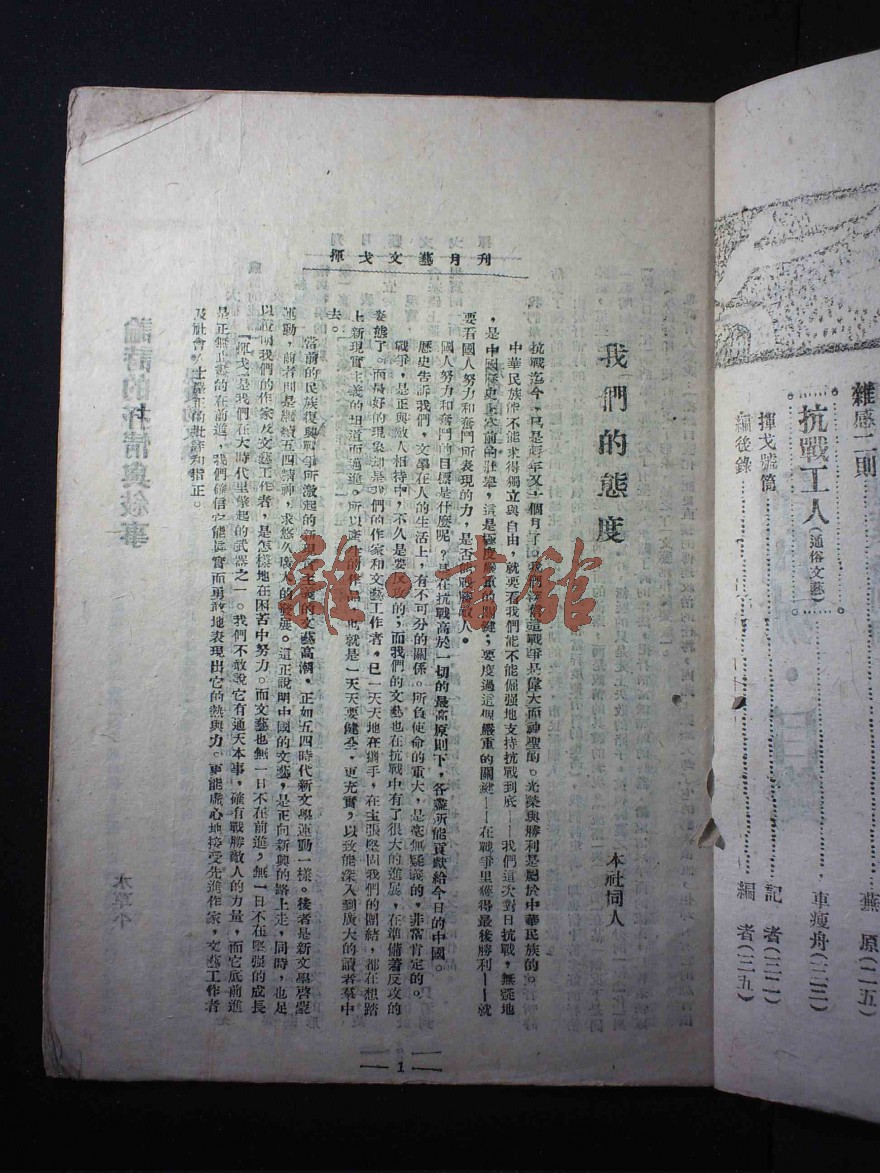 揮戈文藝月刊
我們的態度
本社同人
抗戰迄今、已是兩年又一個月了。我們深信這戰爭是偉大而神聖的。光榮與勝利是屬於中華民族的。
中華民族能不能求得獨立與自由,就要看我們能不能倔强地支持抗戰到底——我們這次對日抗戰,無疑地
,是中國歷史上空前的壯舉,這是極度嚴重的關鍵;要度過這個嚴重的關鍵——在戰爭里獲得最後勝利——就
要看國人努力和奮鬥所表現的力,是否能戰勝敵人。
國人努力和奮鬥的目標是什麼呢?是在抗戰高於一切的最高原則下,各盡所能貢獻給今日的中國。
歷史告訴我們,文學在人的生活上,有不可分的關係。所負使命的重大,是毫無疑義的,非常肯定的。
戰爭,是正與敵人相持中,不久是要反攻的;而我們的文藝也在抗戰中有了很大的進展,在準備着反攻的
姿態了。而最好的現象却是我們的作家和文藝工作者,已一天天地在携手,在主張堅固我們的團結,都在想踏
上新現實主義的坦道而邁進。所以產生的作品,也就是一天天要健全,更充實,以致能深入到廣大的讀者羣中
去。
當前的民族復興戰爭所激起的新現實主義的文藝高潮,正如五四時代新文學運動一樣。後者是新文學啓蒙
運動,前者則是繼續五四精神,求悠久廣大的發展。這正說明中國的文藝,是正向新興的路上走,同時,也足
以證明我們的作家及文藝工作者,是怎樣地在困苦中努力。而文藝也無一日不在前進,無一日不在堅强的成長
「揮戈」是我們在大時代里擎起的武器之一。我們不敢說它有通天本事,確有戰勝敵人的力量,而它底前進
是正無止境的在前道,我們確信它能樸實而勇敢地表現出它的熱與力。更能虛心地接受先進作家,文藝工作者
及社會人士嚴正的批評和指正。
1
雜感二則
蕪原(二五)
抗戰工人(通俗文藝)
車瘦舟(三三)
揮戈號筒
記者(三二)
編後錄
編者(三九)